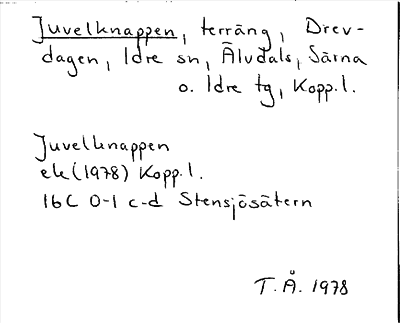 Juvelknappen, terräng, Drev-
dagen, Idre sn, Älvdals, Särna
o. Idre tg, Kopp.l.
Juvelknappen
ek (1978) Kopp.l.
16C 0-1 c-d Stensjösätern
T.Å. 1978